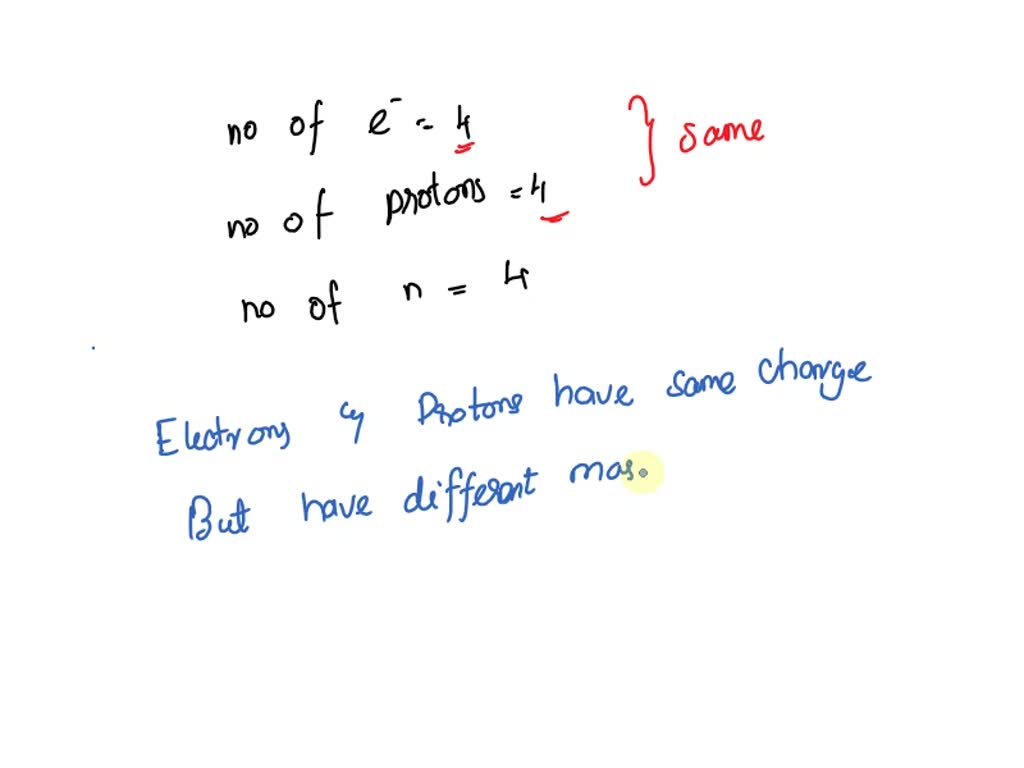 no of e⁻ = 4 } same
no of protons = 4
no of n = 4
Electrons & Protons have same charge
But have different mas